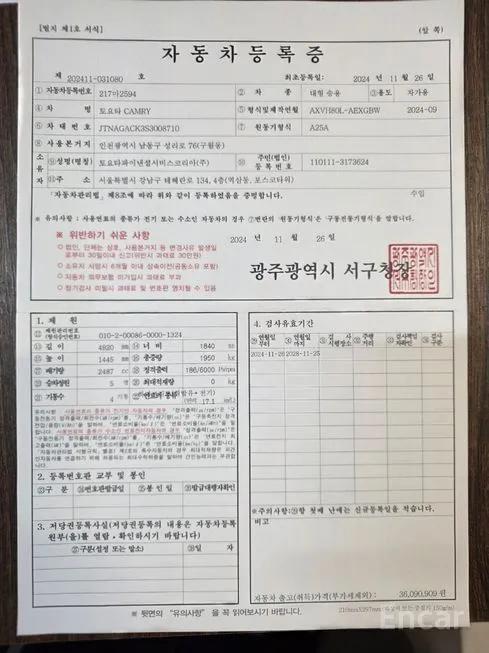 [별지 제1호 서식]
(앞 쪽)
자동차등록증
제 202411-031080 호 최초등록일: 2024 년 11 월 26 일
① 자동차등록번호 217마2594 ② 차 종 대형 승용 ③ 용도 자가용
④ 차 명 토요타 CAMRY ⑤ 형식및제작연월 AXVH80L-AEXGBW 2024-09
⑥ 차 대 번 호 JTNAGACK3S3008710 ⑦ 원동기형식 A25A
⑧ 사용본거지 인천광역시 남동구 성리로 76(구월동)
소유자 ⑨ 성명(명칭) 토요타파이낸셜서비스코리아(주) ⑩ 주민(법인)등록번호 110111-3173624
⑪ 주소 서울특별시 강남구 테헤란로 134, 4층(역삼동, 포스코타워)
「자동차관리법」 제8조에 따라 위와 같이 등록하였음을 증명합니다. 수입
※ 유의사항 : 사용연료의 종류가 전기 또는 수소인 자동차의 경우 ⑦번란의 '원동기형식'은 '구동전동기형식'을 말합니다.
※ 위반하기 쉬운 사항
2024 년 11 월 26 일
○ 법인, 단체는 상호, 사용본거지 등 변경사유 발생일로부터 30일이내 신고(위반시 과태료 30만원)
○ 소유자 사망시 6개월 이내 상속이전(공동소유 포함)
○ 자동차 의무보험 미가입시 과태료 부과
○ 정기검사 미필시 과태료 및 번호판 영치될 수 있음
광주광역시 서구청장
1. 제 원
⑫ 제원관리번호(형식승인번호) 010-2-00086-0000-1324
⑬ 길 이 4920 mm ⑭ 너 비 1840 mm
⑮ 높 이 1445 mm ⑯ 총중량 1950 kg
⑰ 배기량 2487 cc ⑱ 정격출력 186/6000 Ps/rpm
⑲ 승차정원 5 명 ⑳ 최대적재량 0 kg
㉑ 기통수 4 기통 ㉒ 연료의 종류 전기) 17.1
2. 등록번호판 교부 및 봉인
㉓ 구 분 ㉔ 번호판발급일 ㉕ 봉인일 ㉖ 발급대행자확인
3. 저당권등록사실(저당권등록의 내용은 자동차등록원부(을)를 열람·확인하시기 바랍니다)
㉗ 구분(설정 또는 말소) ㉘ 일자
4. 검사유효기간
㉙ 연월일부터 ㉚ 연월일까지 ㉛ 검사시행장소 ㉜ 주행거리 ㉝ 검사책임자확인 ㉞ 검사구분
2024-11-26 2028-11-25
※주의사항:㉙항 첫째 난에는 신규등록일을 적습니다.
비고
자동차 출고(취득)가격(부가세제외): 36,090,909 원
210mm×297mm
※ 뒷면의 "유의사항" 을 꼭 읽어보시기 바랍니다.
Encar